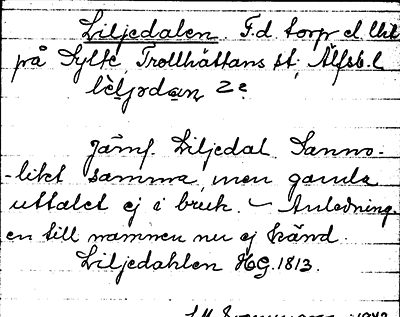 Liljedalen. F.d. torp el. lht
på Sylte, Trollhättans st., Älfsb. l
lìljədan 2e
Jämf. Liljedal. Sanno-
-likt samma, men gamla
uttalet ej i bruk. – Anledning.
en till namnen nu ej känd.
Liljedahlen HG. 1813.